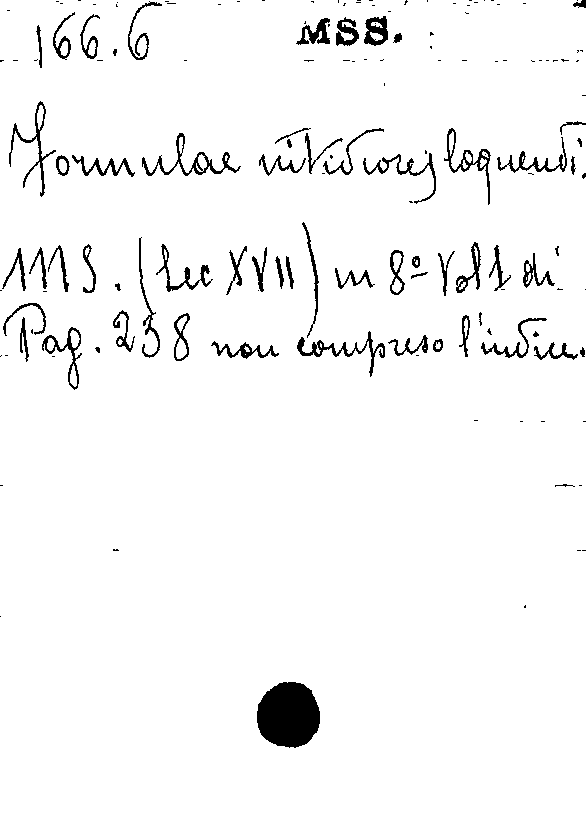 166.6 MSS.
Formulae nitidiores loquendi.
MS. (Sec XVII) in 8º Vol 1 di
Pag. 238 non compreso l'indice.